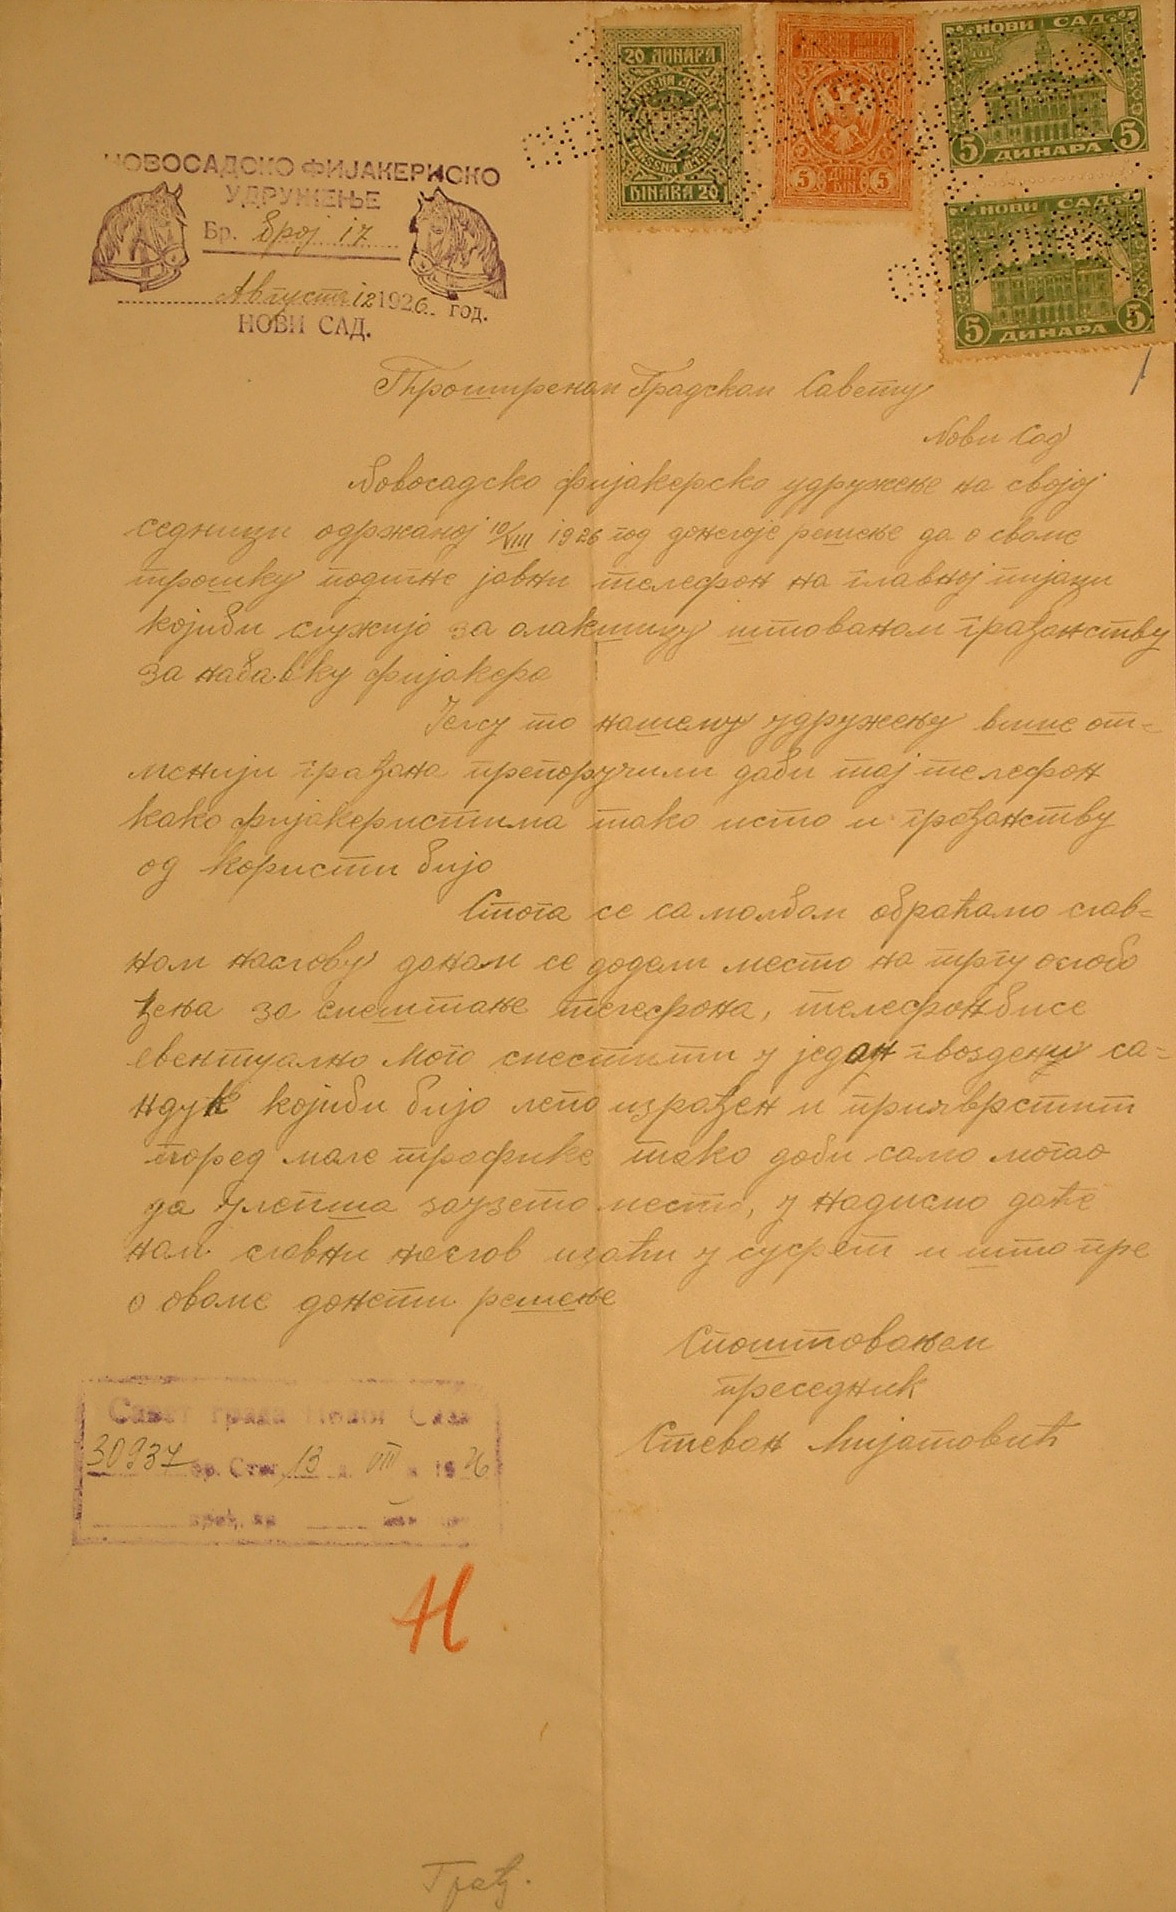 20 ДИНАРА
DINARA 20
5 ДИН DIN 5
НОВИ САД
5 ДИНАРА 5
НОВИ САД
5 ДИНАРА 5
НОВОСАДСКО ФИЈАКЕРИСКО
УДРУЖЕЊЕ
Бр. број 17
Август 12 1926 год.
НОВИ САД.
Проширеном Градском Савету
Нови Сад
Новосадско фијакерско удружење на својој
седници одржаној 10/VIII 1926 год донелоје решење да о своме
трошку подигне јавни телефон на главној пијаци
којиби служијо за олакшицу штованом грађанству
за набавку фијакера
Јелсу то нашему удружењу више от-
менији грађана препоручили даби тај телефон
како фијакеристима тако исто и грађанству
од користи бијо
Стога се са молбом обраћамо слав-
ном наслову данам се додели место на тргу ослобо
ђења за смештање телефона, телефонбисе
евентуално мого сместити у један гвоздени са-
ндук којиби бијо лепо израђен и приврстит
поред мале трафике тако даби само могао
да улепша заузето место, у надисмо даће
нам славни наслов изаћи у сусрет и што пре
о овоме донети решење
Споштовањем
председник
Стеван Мијатовић
Савет града Новог Сада
30937 бр. Стиг. 13 д. VIII м 1926
Н
Грађ.